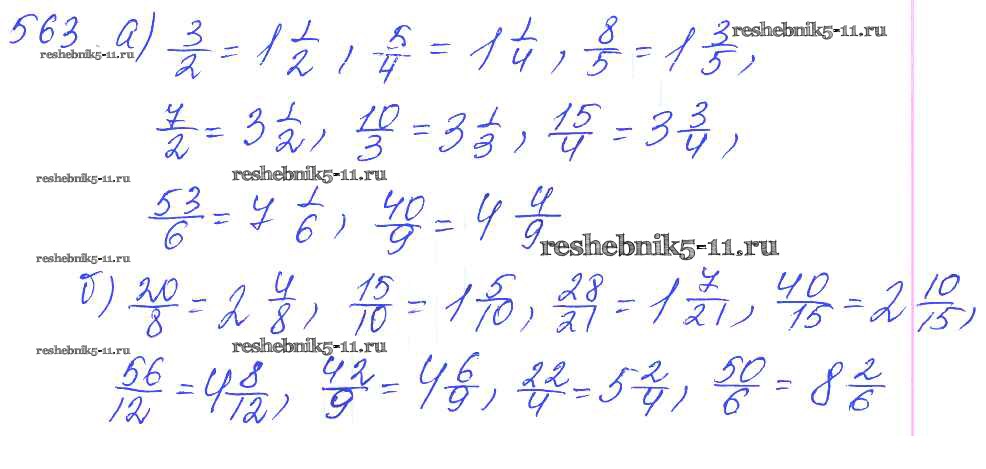 563 а) 3/2 = 1 1/2, 5/4 = 1 1/4, 8/5 = 1 3/5,
reshebnik5-11.ru reshebnik5-11.ru
7/2 = 3 1/2, 10/3 = 3 1/3, 15/4 = 3 3/4,
reshebnik5-11.ru reshebnik5-11.ru
53/6 = 7 1/6, 40/9 = 4 4/9
reshebnik5-11.ru
reshebnik5-11.ru
б) 20/8 = 2 4/8, 15/10 = 1 5/10, 28/21 = 1 7/21, 40/15 = 2 10/15,
reshebnik5-11.ru reshebnik5-11.ru
56/12 = 4 8/12, 42/9 = 4 6/9, 22/4 = 5 2/4, 50/6 = 8 2/6